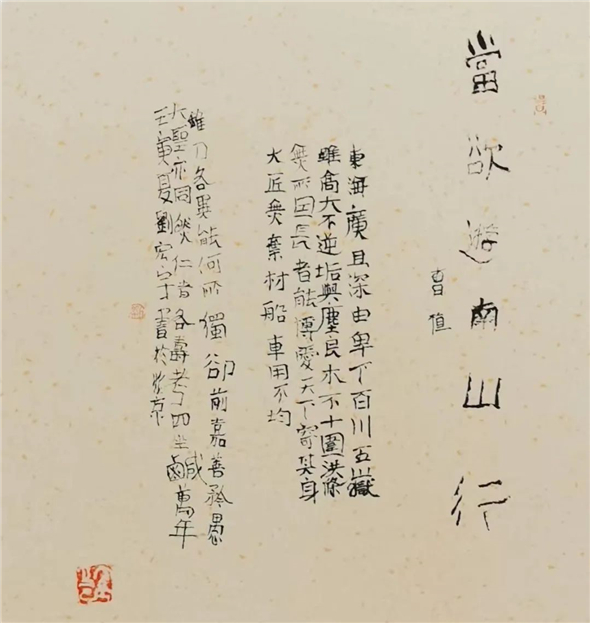 當欲遊南山行
曹值
東海廣且深由卑下百川五嶽
雖高大不逆垢與塵良木不十圍洪條
無所因長者能博愛天下寄其身
大匠無棄材船車用不均
錐刀各異能何所獨卻前嘉善矜愚
大聖亦同然仁者各壽考四坐鹹萬年
壬寅夏劉宏書於北京